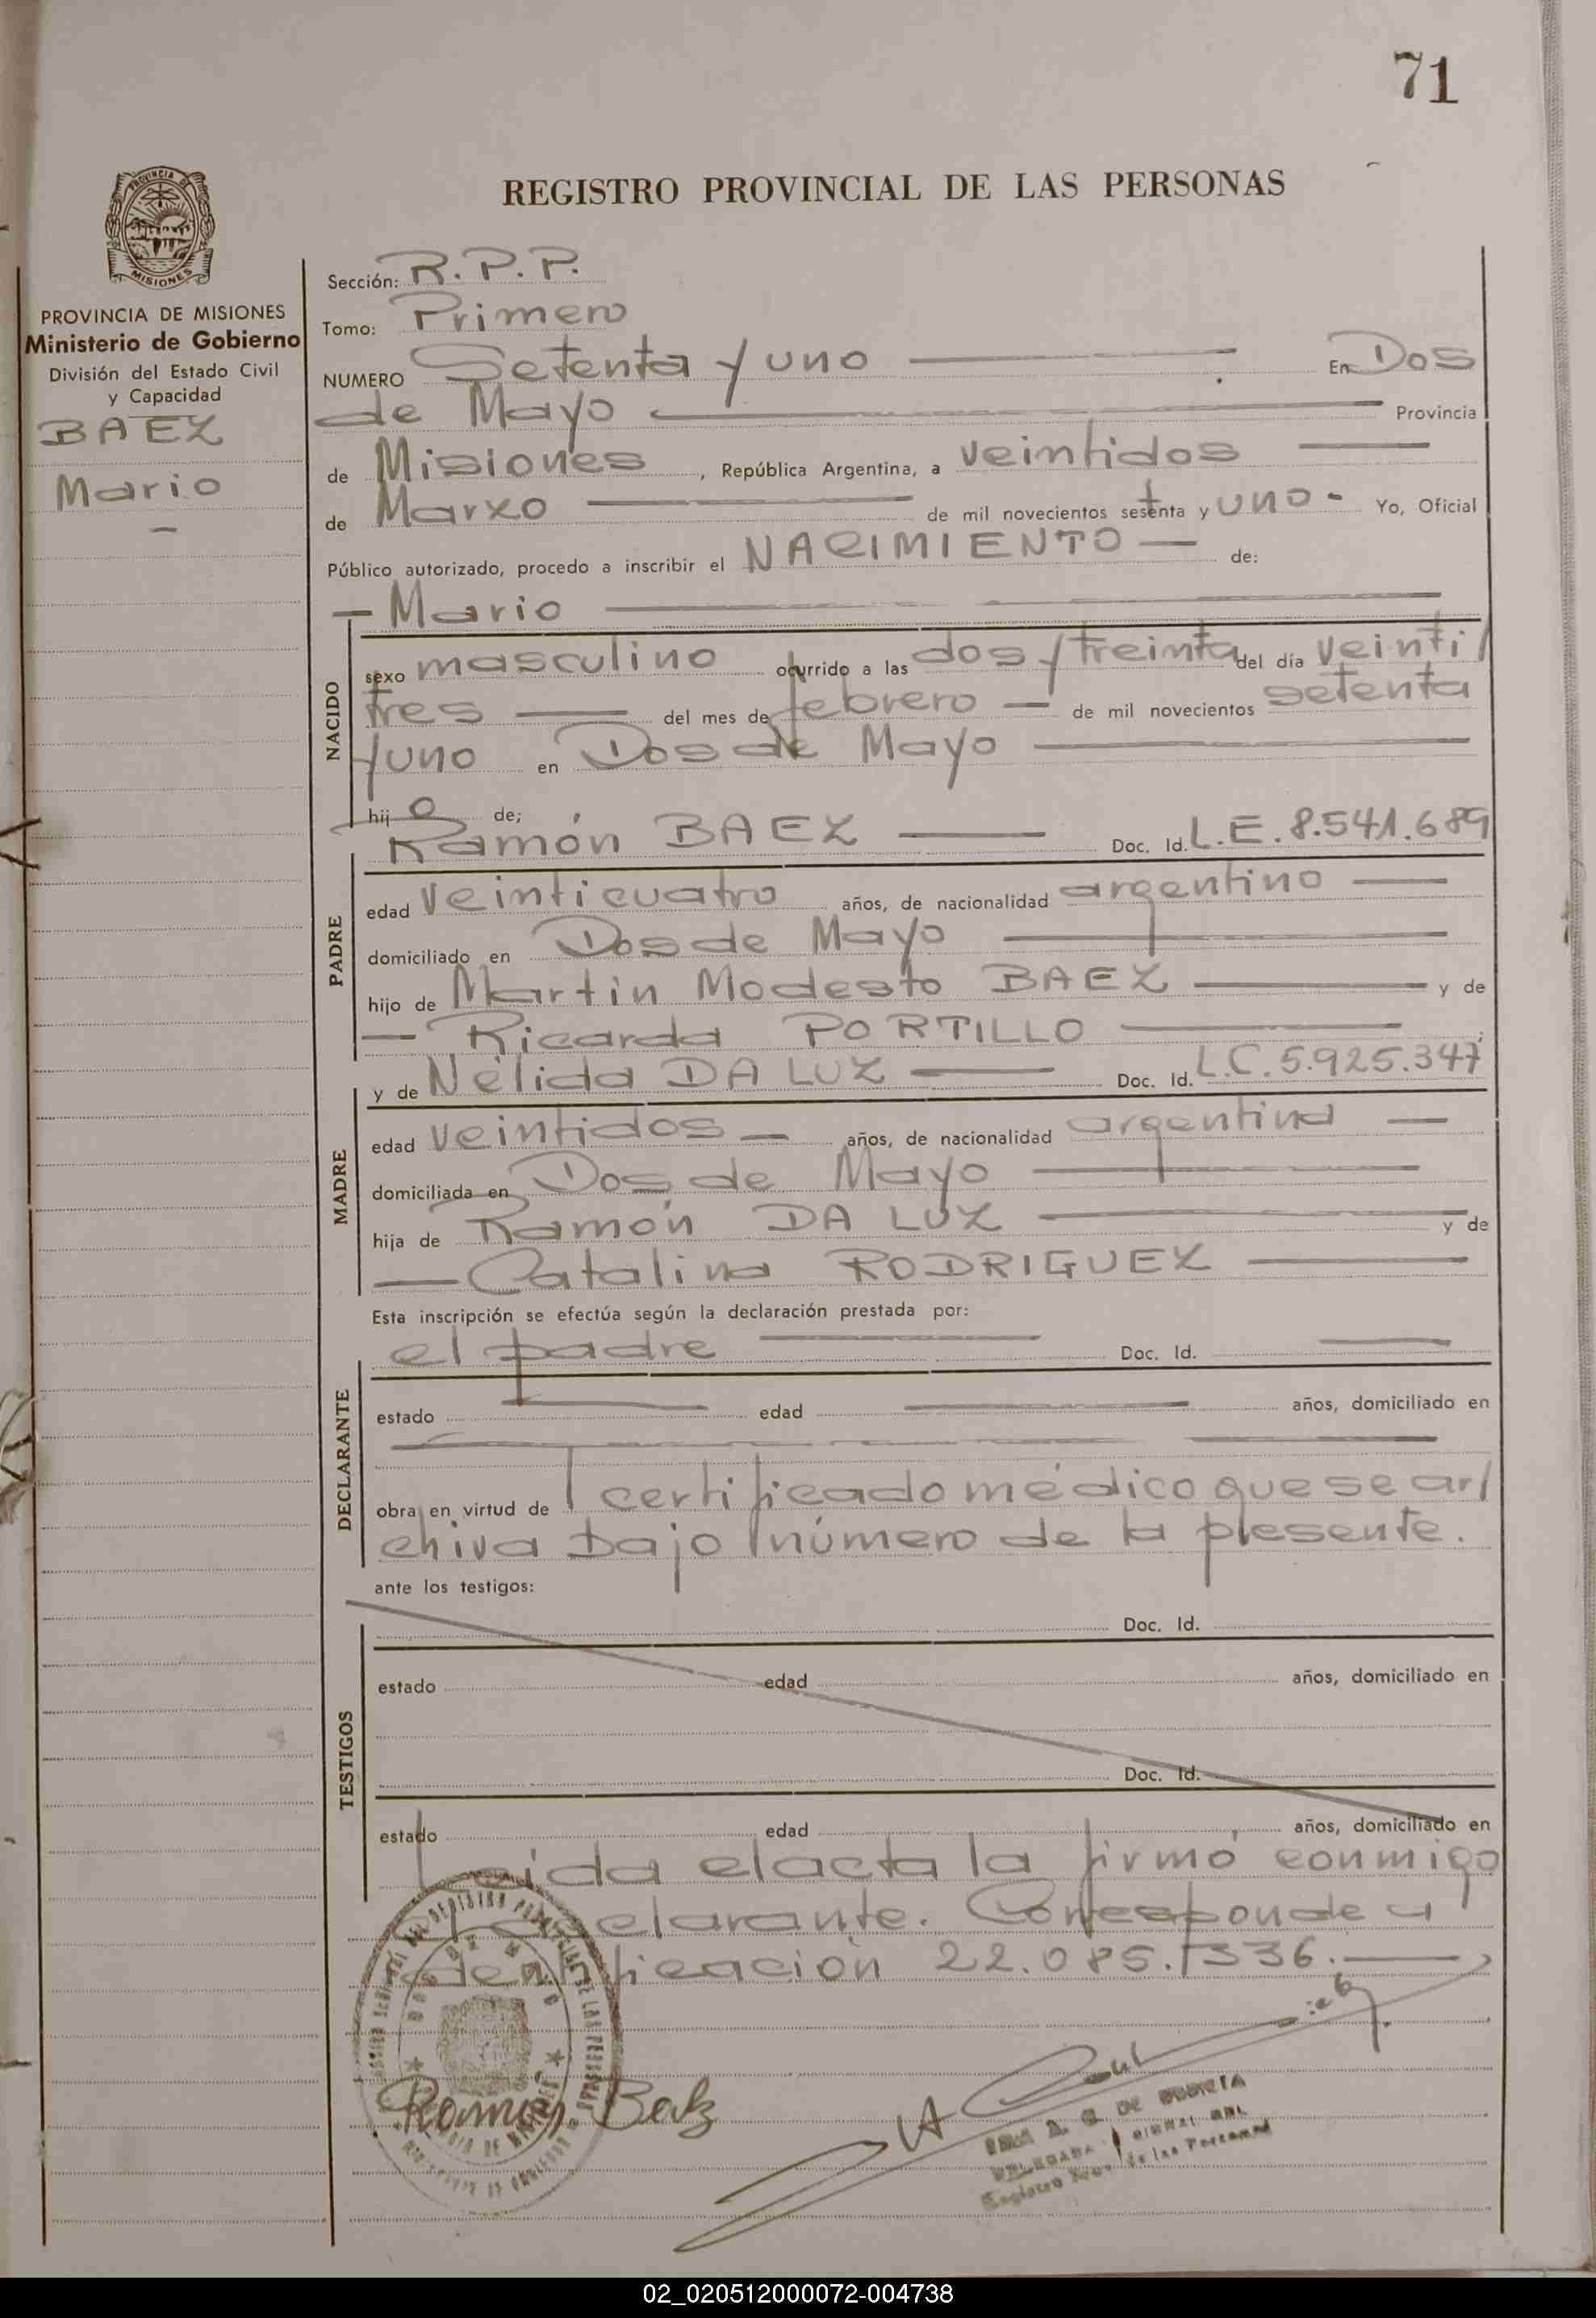 71
REGISTRO PROVINCIAL DE LAS PERSONAS
PROVINCIA DE
MISIONES
PROVINCIA DE MISIONES
Ministerio de Gobierno
División del Estado Civil
y Capacidad
BAEZ
Mario
Sección: R.P.P.
Tomo: Primero
NUMERO Setenta y uno En Dos
de Mayo Provincia
de Misiones, República Argentina, a veintidos
de Marzo de mil novecientos setenta y uno - Yo, Oficial
Público autorizado, procedo a inscribir el NACIMIENTO de:
Mario
NACIDO
sexo masculino ocurrido a las dos y treinta del día veinti/
tres del mes de febrero de mil novecientos setenta
y uno en Dos de Mayo
hijo de;
Ramón BAEZ Doc. Id. L.E. 8.541.689
PADRE
edad veinticuatro años, de nacionalidad argentino
domiciliado en Dos de Mayo
hijo de Martin Modesto BAEZ y de
Ricarda PORTILLO
y de Nélida DA LUZ Doc. Id. L.C. 5.925.347
MADRE
edad veintidos años, de nacionalidad argentina
domiciliada en Dos de Mayo
hija de Ramón DA LUZ y de
Catalina RODRIGUEZ
Esta inscripción se efectúa según la declaración prestada por:
el padre Doc. Id.
DECLARANTE
estado edad años, domiciliado en
obra en virtud de certificado médico que se ar/
chiva bajo número de la presente.
ante los testigos:
Doc. Id.
TESTIGOS
estado edad años, domiciliado en
Doc. Id.
estado edad años, domiciliado en
Leida el acta la firmó conmigo
el declarante. Corresponde a
identificación 22.085.336.
Ramón Baez
DE
de las Personas
02_020512000072-004738